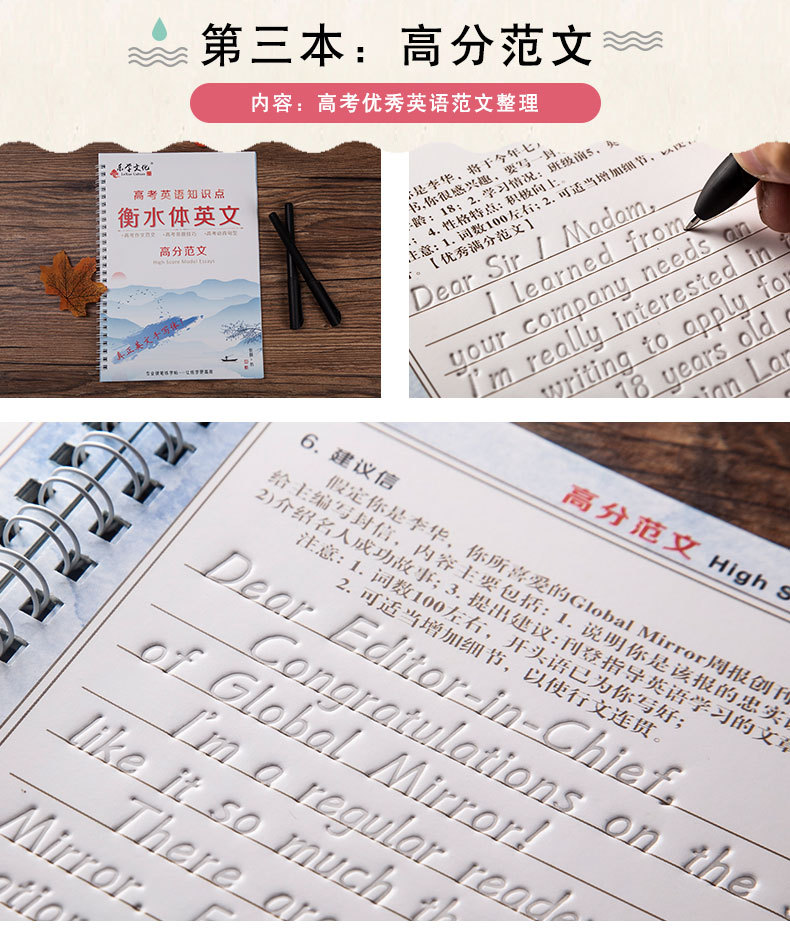 第三本：高分范文
内容：高考优秀英语范文整理
乐学文化
高考英语知识点
衡水体英文
高分范文
High-Score Model Essays
真正英文手写体
你很感兴趣，要写一封
龄：18；2. 学习情况：班级前5，英
；4. 性格特点：积极向上。
注意：1. 词数100左右；2. 可适当增加细节，以使
。【优秀满分范文】
Dear Sir / Madam,
I learned from
your company needs an
I'm really interested in
writing to apply for
18 years old
6. 建议信
高分范文 High S
假定你是李华，你所喜爱的Global Mirror周报创刊
给主编写封信，内容主要包括：1. 说明你是该报的忠实
2)介绍名人成功故事；3. 提出建议：刊登指导英语学习的文章
注意：1. 词数100左右，开头语已为你写好；
2. 可适当增加细节，以使行文连贯。
Dear Editor-in-Chief,
Congratulations on the
of Global Mirror!
I'm a regular reader
like it so much
There are
Mirror.